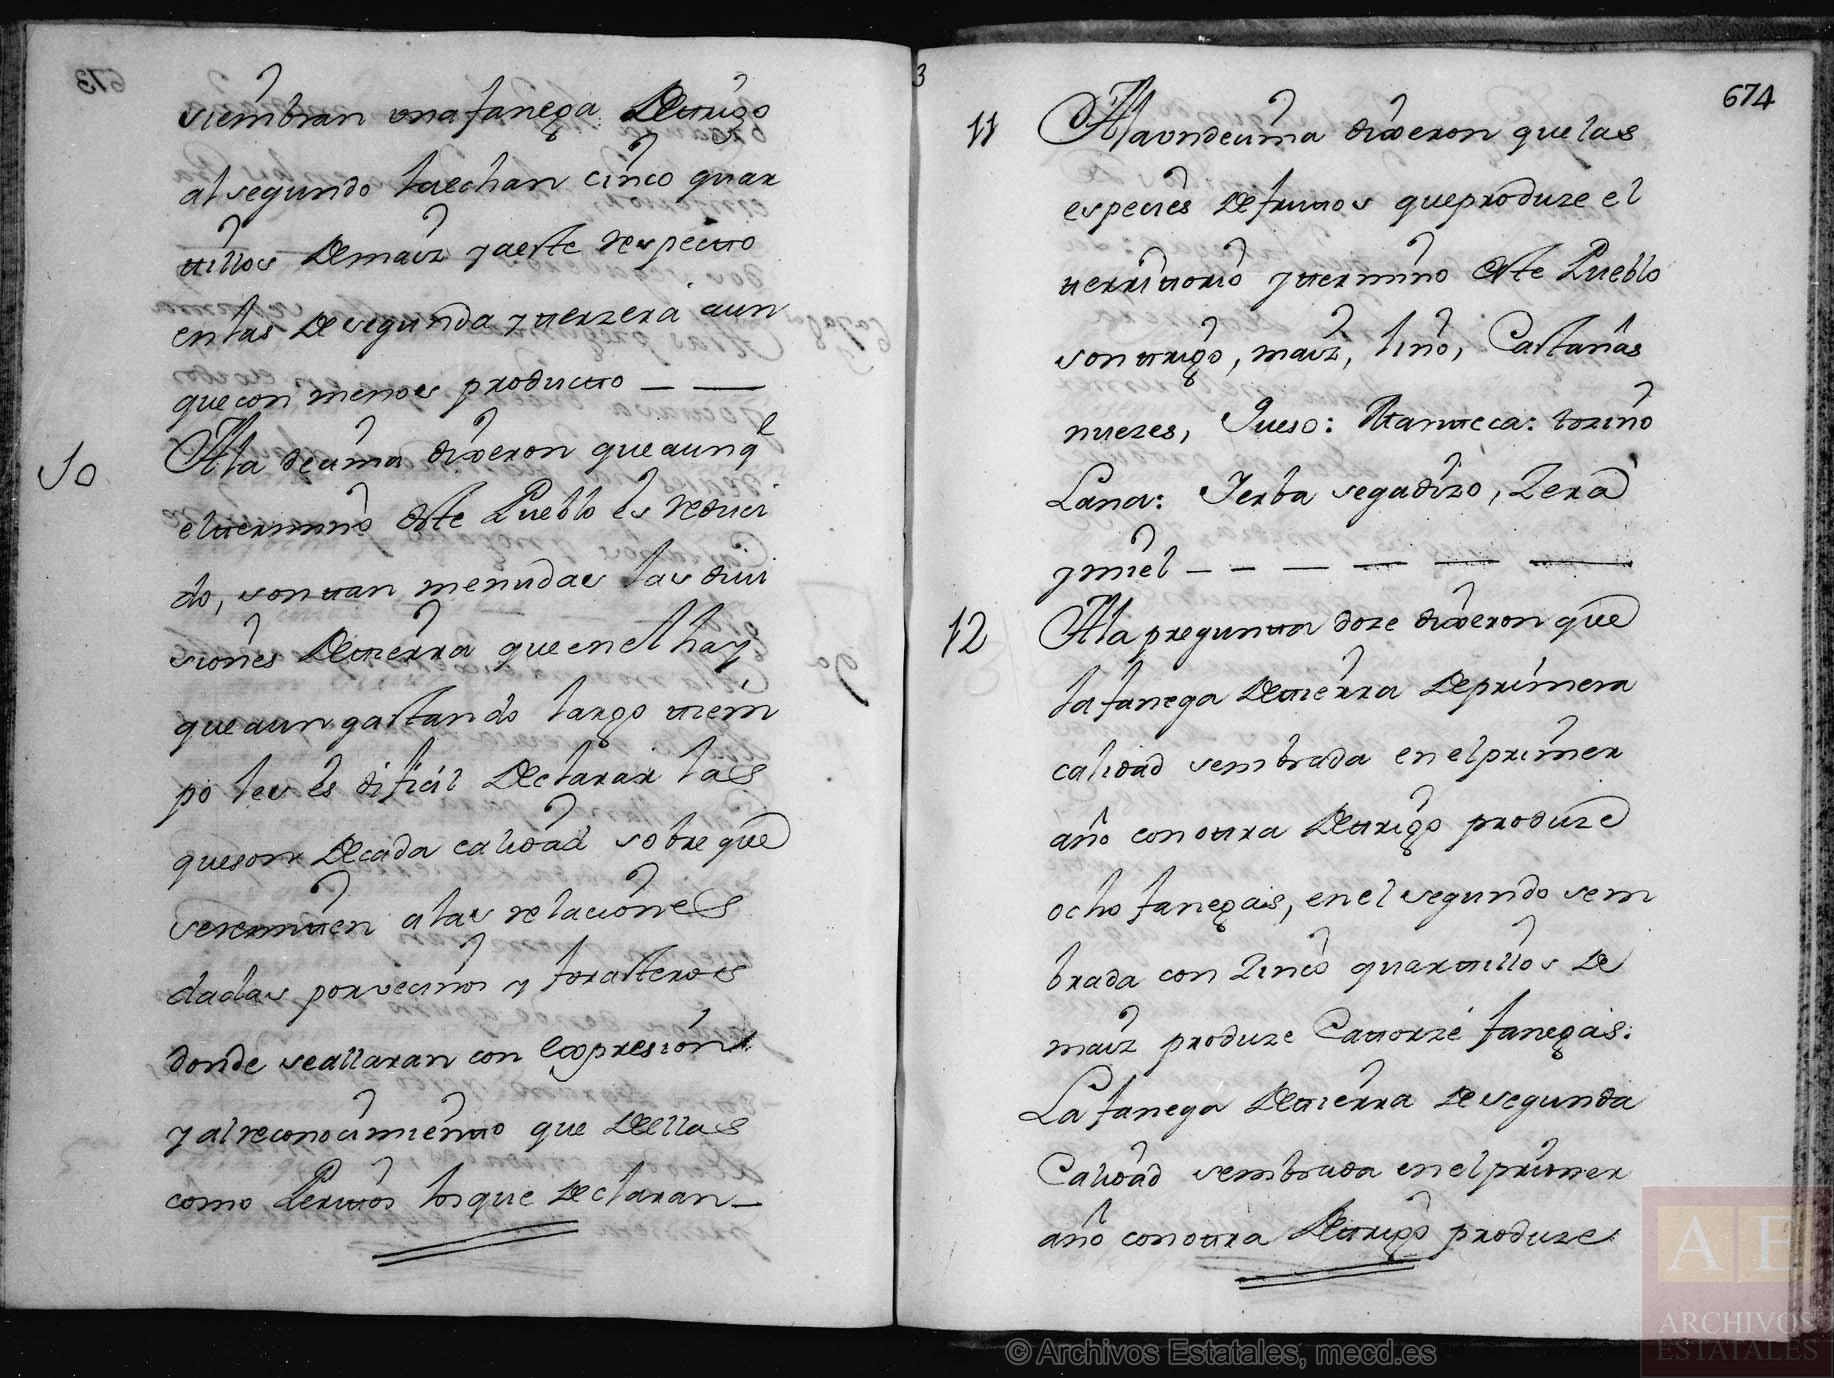 siembran una fanega de trigo
al segundo la echan cinco quar
tillos de maiz y a este respecto
en las de segunda y terzera aun
que con menos producto — —
10 A la decima dixeron que aunq̃
el termino deste Pueblo es reduci
do, son tan menudas las divi
siones de tierra que en el hay
que aun gastando largo tiem
po les es dificil declarar las
que son de cada calidad sobre que
se remiten a las relaciones
dadas por vecinos y forasteros
donde se allaran con expresion
y al reconocimiento que de ellas
como Peritos los que declaran —
3
674
11 A la undecima dixeron que las
especies de frutos que produze el
territorio y termino deste Pueblo
son trigo, maiz, lino, Castañas
nuezes, Queso: Manteca: tozino
Lana: Yerba segadizo, Zera
y miel — — — — — —
12 A la pregunta doze dixeron que
la fanega de tierra de primera
calidad sembrada en el primer
año con otra de trigo produze
ocho fanegas, en el segundo sem
brada con Zinco quartillos de
maiz produze Catorze fanegas:
La fanega de tierra de segunda
Calidad sembrada en el primer
año con otra de trigo produze
AE
ARCHIVOS
ESTATALES
© Archivos Estatales, mecd.es